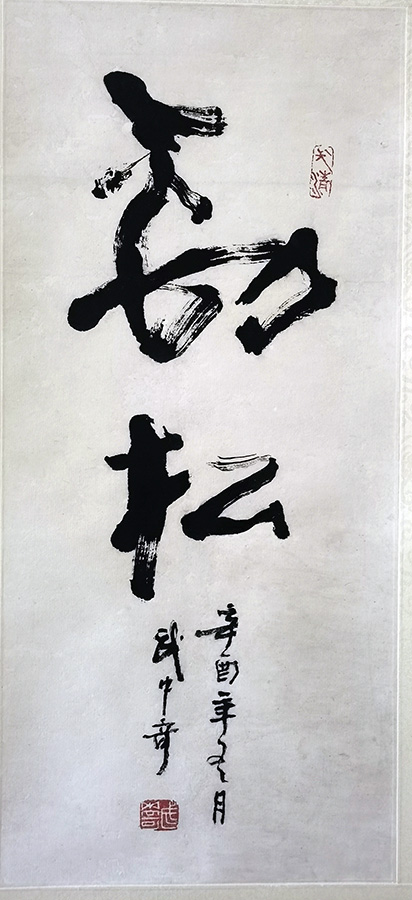 勁松
辛酉年冬月
武中奇